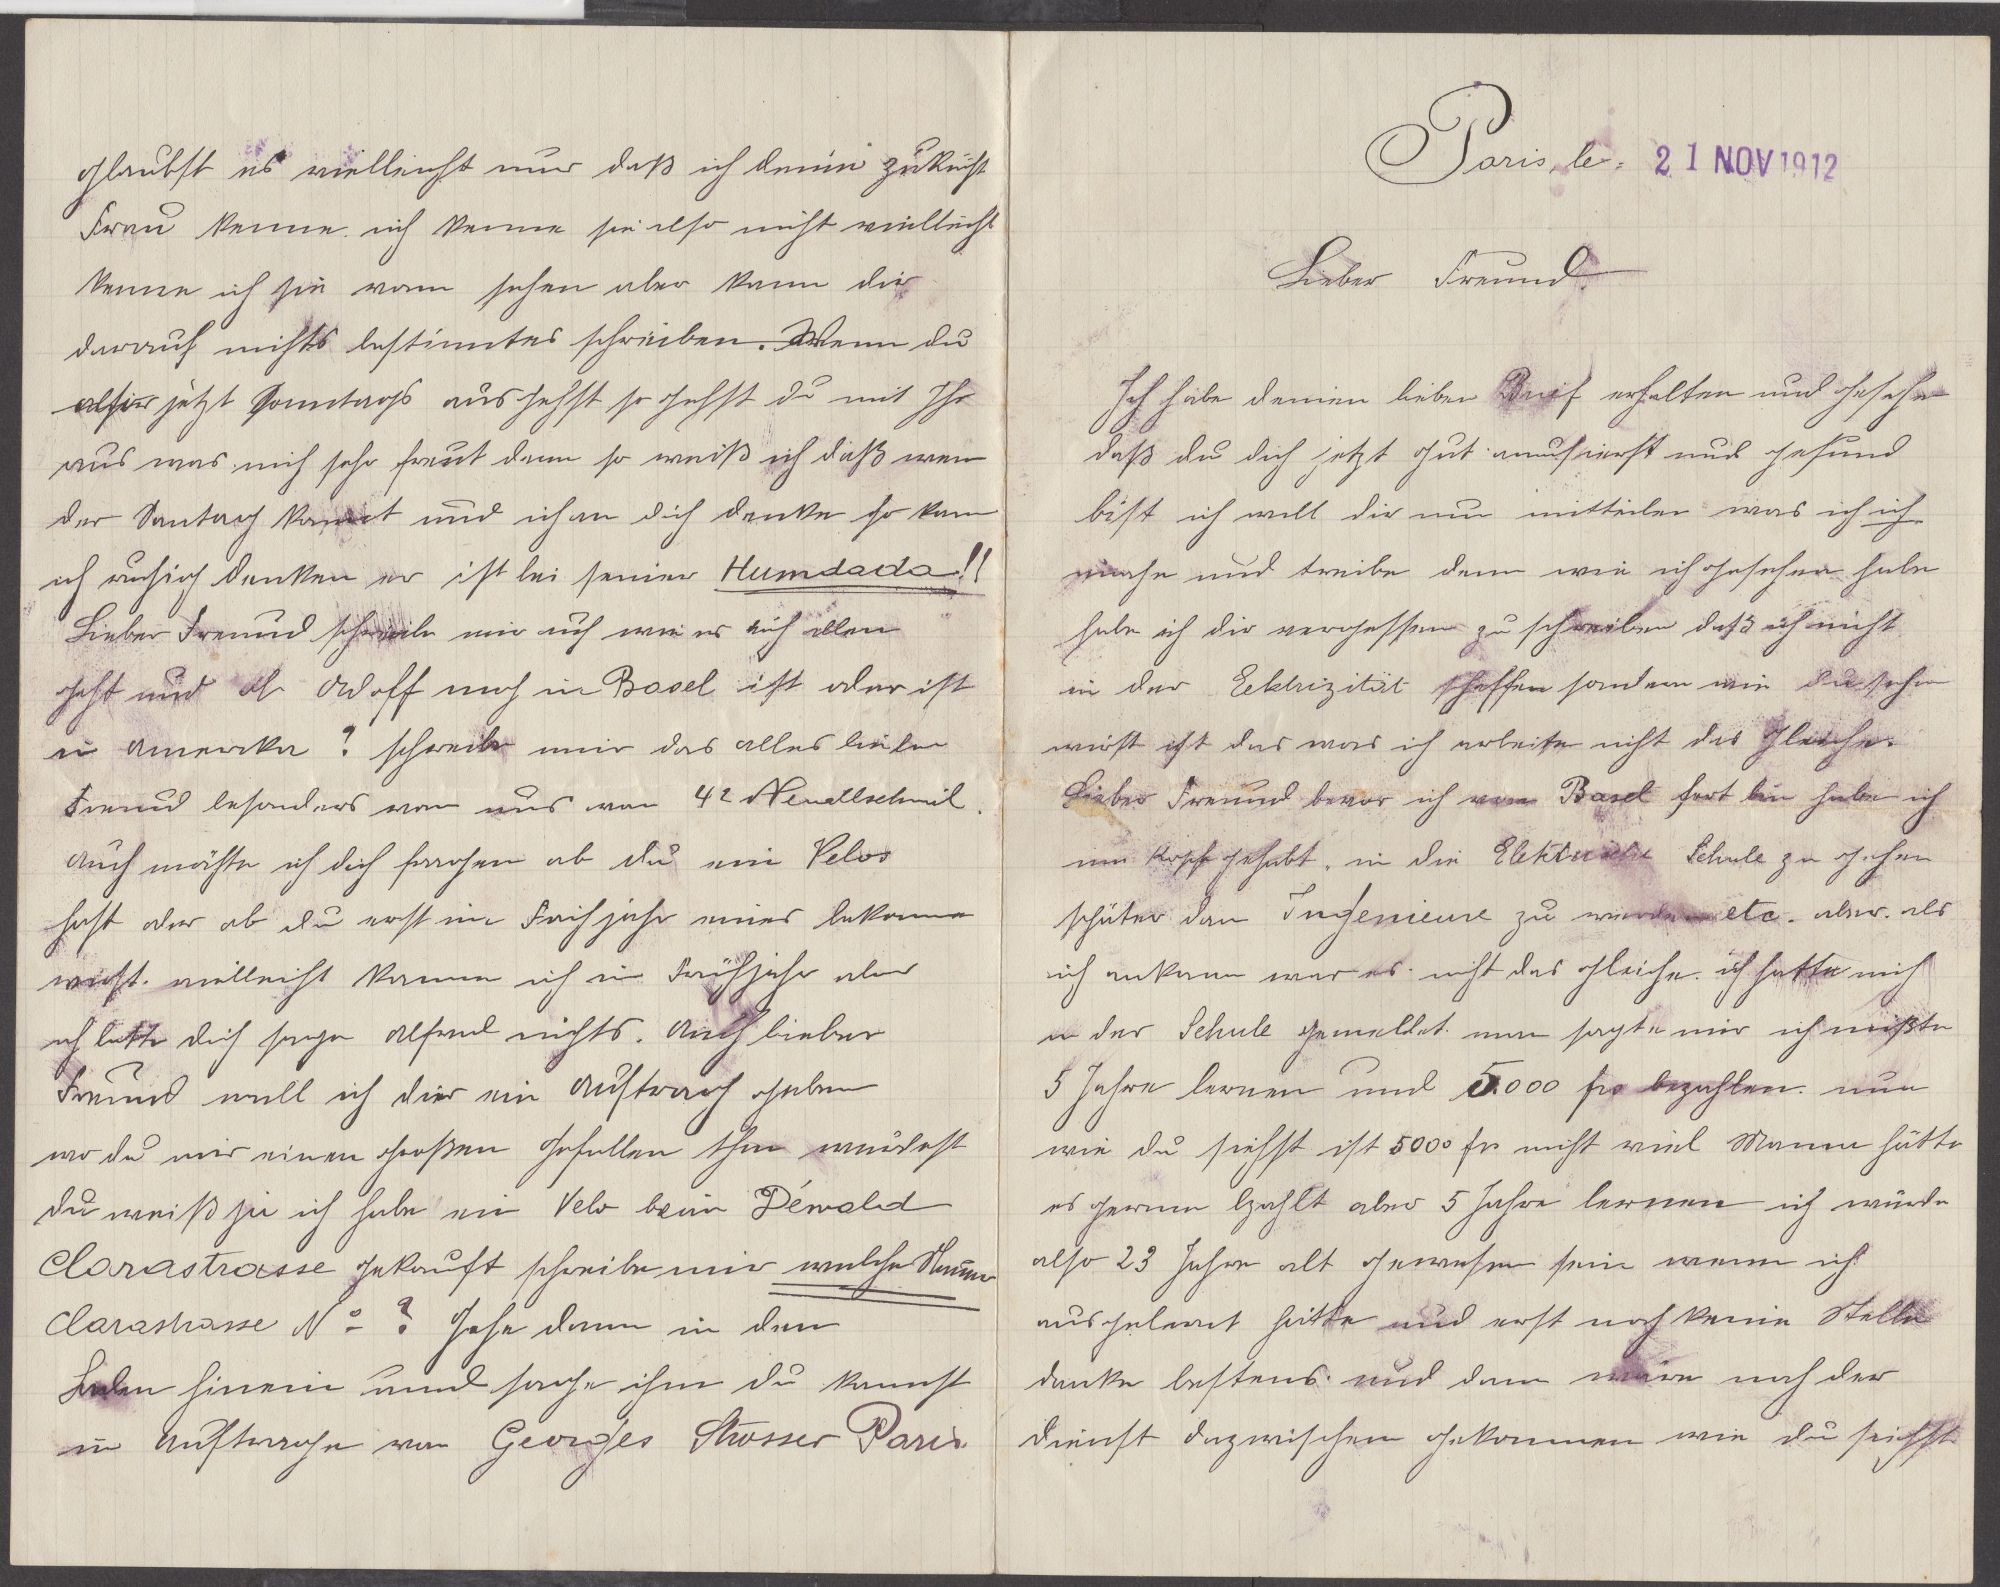 Paris, le: 21 NOV 1912
Lieber Freund
Ich habe deinen lieben Brief erhalten und gesehen
daß du dich jetzt gut amusierst und gesund
bist ich will dir nun mitteilen was ich ich
mache und treibe denn wie ich gesehen habe
habe ich dir vergessen zu schreiben daß ich nicht
in der Eektrizität schaffen sondern wie du sehen
wirst ist das was ich arbeite nicht das gleiche.
Lieber Freund bevor ich von Basel fort bin habe ich
im Kopf gehabt, in die Schule zu gehen
später dan Ingenieure zu werden etc. aber als
ich ankam war es nicht das gleiche. ich hatte mich
in der Schule gemeldet. man sagte mir ich müßte
5 Jahre lernen und 5000 frs bezahlen. nun
wie du siehst ist 5000 fr nicht viel Mama hätte
es gerne bzahlt aber 5 Jahre lernen ich würde
also 23 Jahre alt gewesen sein wenn ich
ausgelernt hätte und erst noch keine Stelle
danke bestens. und dann wäre noch der
Dienst dazwischen gekommen wie du siehst
glaubst es vielleicht nur daß ich deine
Frau kenne. ich kenne sie also nicht vielleicht
kenne ich sie vom sehen aber kann dir
darauf nichts bestimmtes schreiben. Wenn du
jetzt Sonntags ausgehst so gehst du mit Ihr
aus was mich sehr freut denn so weiß ich daß wen
der Santag kommt und ich an dich denke so kann
ich ruhig denken er ist bei seiner Humdada!!
Lieber Freund schreibe mir auch wie es euch allen
geht und ob Adolf noch in Basel ist oder ist
in Amerika? schreibe mir das alles lieber
Freund besonders von uns von 42
Auch möchte ich dich fragen ob du ein Velos
hast oder ob du erst im Frühjahr eines bekomme
wirst. vielleicht komme ich im Frühjahr aber
ich bitte dich sage Alfred nichts. Auch lieber
Freund will ich dier ein Auftrag geben
wo du mir einen großen Gefallen thun würdest
du weiß ja ich habe ein Velo beim Déwald
Clarastrasse gekauft schreibe mir welche Numer
Clarastrasse No ? Gehe dann in den
Laden hinein und sage ihm du kommst
im Auftrage von Georges Strosser Paris